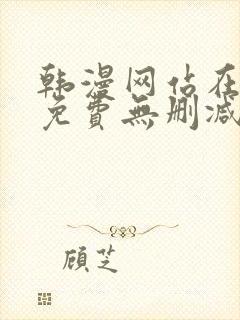 韩漫网站在
免費無删减
顾芝